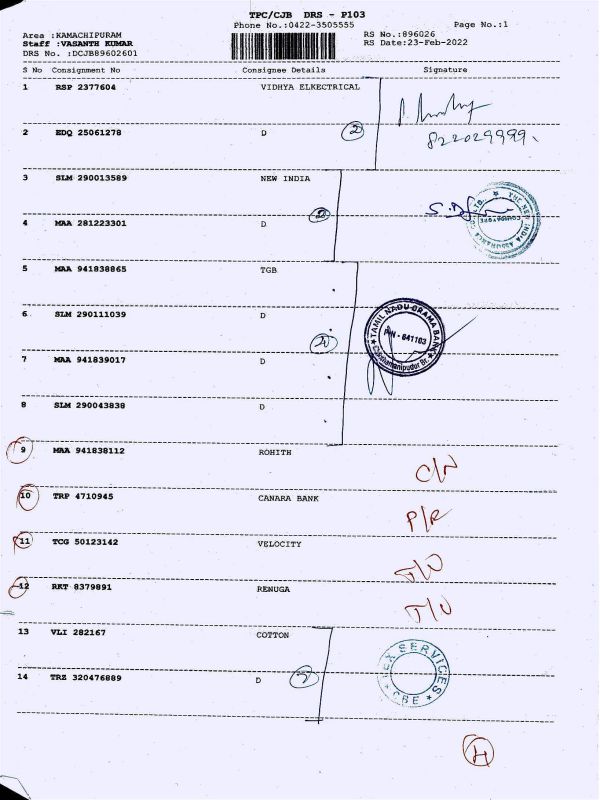 TPC/CJB DRS - P103
Phone No.:0422-3505555 Page No.:1
Area :KAMACHIPURAM RS No.:896026
Staff :VASANTH KUMAR RS Date:23-Feb-2022
DRS No. :DCJB89602601
S No Consignment No Consignee Details Signature
1 RSP 2377604 VIDHYA ELKECTRICAL
2 EDQ 25061278 D 2 822029999.
3 SLM 290013589 NEW INDIA
4 MAA 281223301 D 2
THE NEW INDIA ASSURANCE CO. LTD. COIMBATORE
5 MAA 941838865 TGB
6 SLM 290111039 D
TAMIL NADU GRAMA BANK
PIN - 641103
7 MAA 941839017 D
8 SLM 290043838 D
9 MAA 941838112 ROHITH C/N
10 TRP 4710945 CANARA BANK P/R
11 TCG 50123142 VELOCITY
12 RKT 8379891 RENUGA
13 VLI 282167 COTTON
14 TRZ 320476889 D
SERVICES
CBE